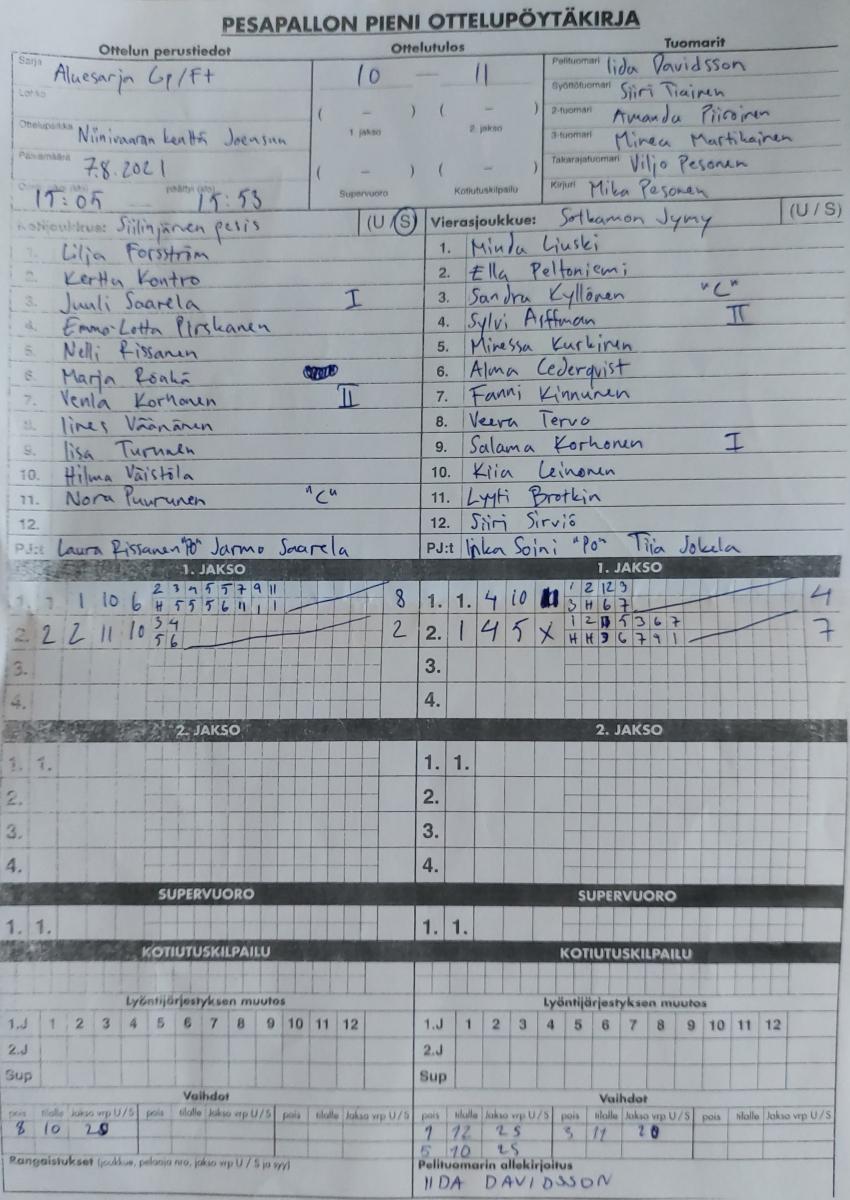 PESAPALLON PIENI OTTELUPÖYTÄKIRJA
Ottelun perustiedot Ottelutulos Tuomarit
Sarja Aluesarja Gp/F+
Lohko
Ottelupaikka Niinivaaran kenttä Joensuu
Päivämäärä 7.8.2021
15:05 15:53
10 — 11
( – ) ( – )
1. jakso 2. jakso
( – ) ( – )
Supervuoro Kotiutuskilpailu
Pelituomari Iida Davidsson
Syöttötuomari Siiri Tiainen
2-tuomari Amanda Piiroinen
3-tuomari Minea Martikainen
Takarajatuomari Viljo Pesonen
Kirjuri Mika Pesonen
Kotijoukkue: Siilinjärven pesis (U/S)
1. Lilja Forsström
2. Kerttu Kontro
3. Juuli Saarela I
4. Emma-Lotta Pirskanen
5. Nelli Rissanen
6. Marja Rönkä
7. Venla Korhonen II
8. Iines Väänänen
9. Iisa Turunen
10. Hilma Väistöla
11. Nora Puurunen "C"
12.
PJ:t Laura Rissanen "PO" Jarmo Saarela
Vierasjoukkue: Sotkamon Jymy (U/S)
1. Minda Liuski
2. Ella Peltoniemi
3. Sandra Kyllönen "C"
4. Sylvi Arffman II
5. Minessa Kurkinen
6. Alma Cederqvist
7. Fanni Kinnunen
8. Veera Tervo
9. Salama Korhonen I
10. Kiia Leinonen
11. Lyyti Brotkin
12. Siiri Sirviö
PJ:t Inka Soini "PO" Tiia Jokela
1. JAKSO
1. 1 1 10 6 2 3 4 5 5 7 9 11 8
H 5 5 5 6 11 1 1
2. 2 2 11 10 3 4 2
5 6
3.
4.
1. JAKSO
1. 1. 4 10 1 2 12 3 4
3 H 6 7
2. 1 4 5 X 1 2 5 3 6 7 7
H H 3 6 7 9 1
3.
4.
2. JAKSO
1. 1.
2.
3.
4.
2. JAKSO
1. 1.
2.
3.
4.
SUPERVUORO SUPERVUORO
1. 1. 1. 1.
KOTIUTUSKILPAILU KOTIUTUSKILPAILU
Lyöntijärjestyksen muutos Lyöntijärjestyksen muutos
1.J 1 2 3 4 5 6 7 8 9 10 11 12 1.J 1 2 3 4 5 6 7 8 9 10 11 12
2.J 2.J
Sup Sup
Vaihdot Vaihdot
pois tilalle Jakso vrp U/S pois tilalle Jakso vrp U/S pois tilalle Jakso vrp U/S
8 10
pois tilalle Jakso vrp U/S pois tilalle Jakso vrp U/S pois tilalle Jakso vrp U/S
12 2S 3 11
5 10 2S
Rangaistukset (joukkue, pelaaja nro, jakso vrp U/S ja syy)
Pelituomarin allekirjoitus
IIDA DAVIDSSON